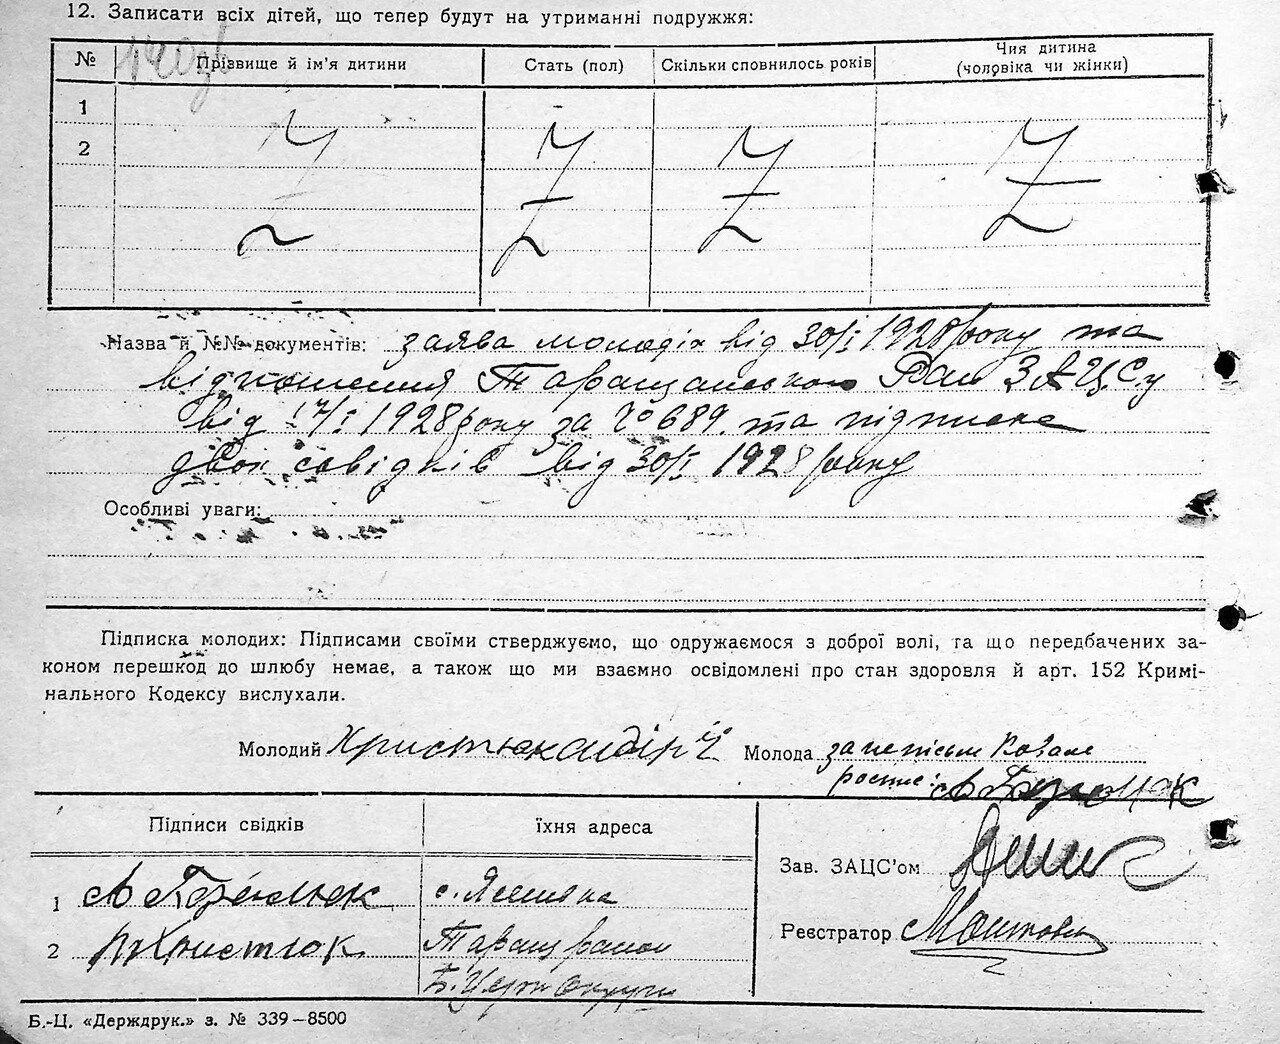 12. Записати всіх дітей, що тепер будут на утриманні подружжя:
№ Прізвище й ім'я дитини Стать (пол) Скільки сповнилось років Чия дитина
(чоловіка чи жінки)
1
2
Назва й №№ документів: заява молодіх від 30/I 1928 року та
відношення Таращанського Рай ЗАЦСу
від 17/I 1928 року за № 689. та підписка
двох свідків від 30/I 1928 року
Особливі уваги:
Підписка молодих: Підписами своїми стверджуємо, що одружаємося з доброї волі, та що передбачених за-
коном перешкод до шлюбу немає, а також що ми взаємно освідомлені про стан здоровля й арт. 152 Кримі-
нального Кодексу вислухали.
Молодий Христюк Молода
Підписи свідків їхня адреса
Зав. ЗАЦС'ом
1 с.
2 Христюк Таращ району
Реєстратор
Б.Церк округи
Б.-Ц. «Держдрук.» з. № 339–8500